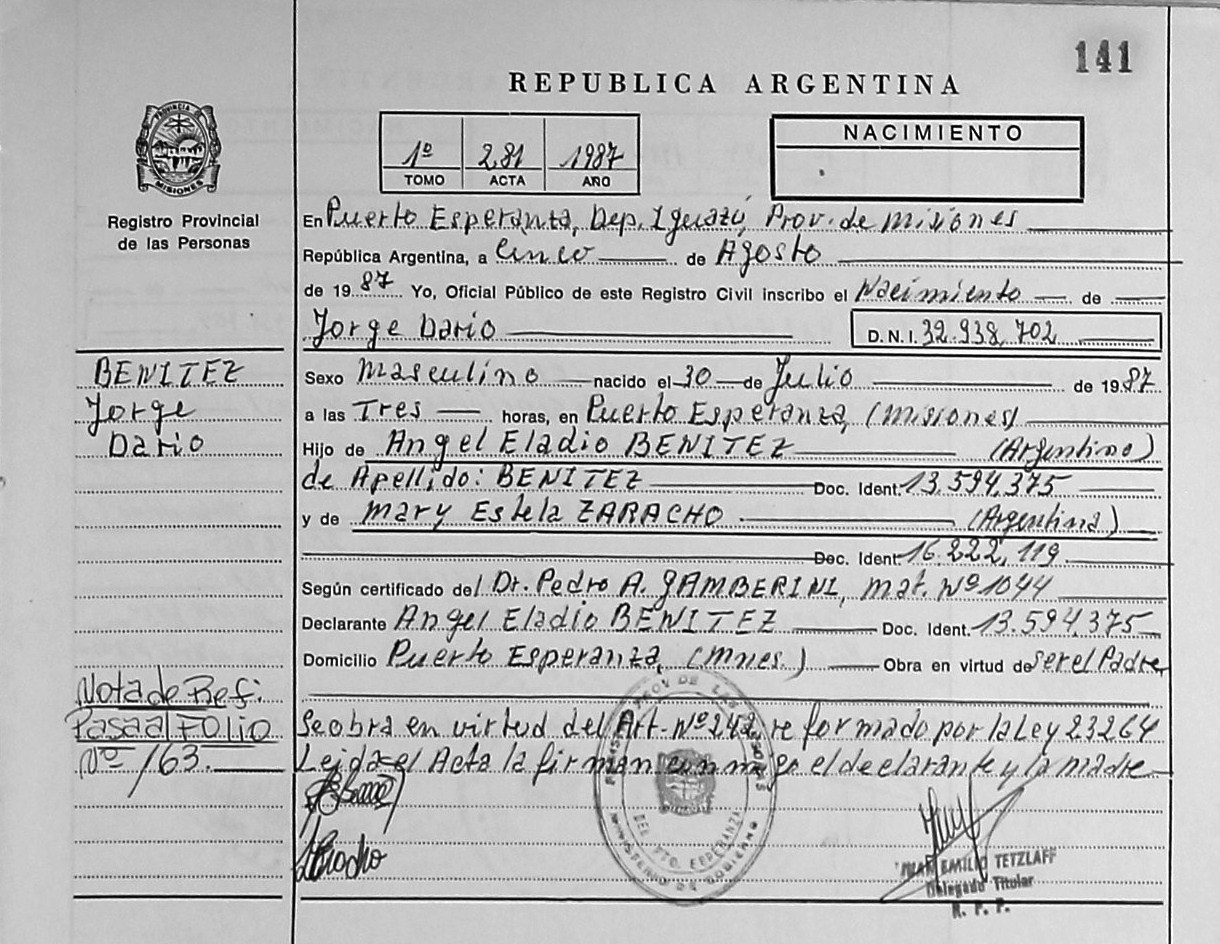 141
REPUBLICA ARGENTINA
PROVINCIA DE
MISIONES
Registro Provincial
de las Personas
1º 281 1987
TOMO ACTA AÑO
NACIMIENTO
En Puerto Esperanza, Dep. Iguazú, Prov. de Misiones
República Argentina, a Cinco de Agosto
de 1987 Yo, Oficial Público de este Registro Civil inscribo el Nacimiento de
Jorge Dario D.N.I. 32.938,702
BENITEZ
Jorge
Dario
Sexo Masculino nacido el 30 de Julio de 1987
a las Tres horas, en Puerto Esperanza, (Misiones)
Hijo de Angel Eladio BENITEZ (Argentino)
de Apellido: BENITEZ Doc. Ident. 13.594,375
y de Mary Estela ZARACHO (Argentina)
Doc. Ident. 16.222,119
Según certificado del Dr. Pedro A. GAMBERINI, mat. Nº 1044
Declarante Angel Eladio BENITEZ Doc. Ident. 13.594,375
Domicilio Puerto Esperanza, (Mnes.) Obra en virtud de ser el Padre,
Nota de Ref:
Pasa al FOLIO
Nº 163.
Se obra en virtud del Art. Nº 242, reformado por la Ley 23264
Leida el Acta la firman conmigo el declarante y la madre
DEL PTO. ESPERANZA
MINISTERIO DE GOBIERNO
JUAN EMILIO TETZLAFF
Delegado Titular
R. P. P.